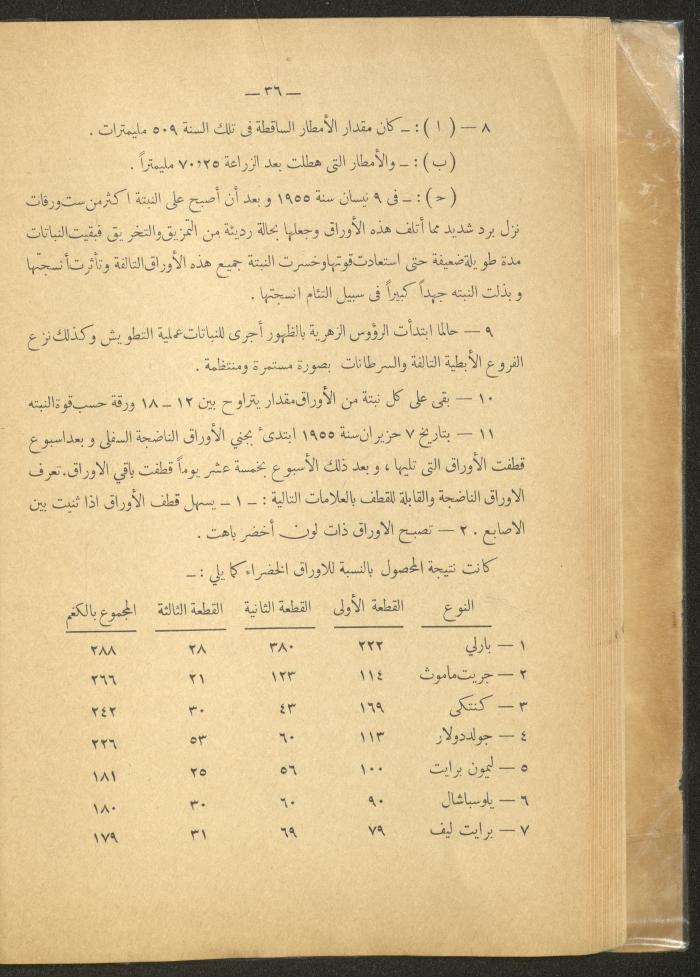 — ٣٦ —
٨ — ( ا ) : ـ كان مقدار الأمطار الساقطة فى تلك السنة ٥٠٩ مليمترات .
(ب) : ـ والأمطار التى هطلت بعد الزراعة ٧٠,٢٥ مليمتراً .
(ح) : ـ فى ٩ نيسان سنة ١٩٥٥ و بعد أن أصبح على النبتة اكثر من ست ورقات
نزل برد شديد مما أتلف هذه الأوراق وجعلها بحالة رديئة من التمزيق والتخريق فبقيت النباتات
مدة طويلة ضعيفة حتى استعادت قوتها وخسرت النبتة جميع هذه الأوراق التالفة وتأثرت أنسجتها
و بذلت النبته جهداً كبيراً فى سبيل التئام انسجتها .
٩ — حالما ابتدأت الرؤوس الزهرية بالظهور أجرى للنباتات عملية التطويش وكذلك نزع
الفروع الأبطية التالفة والسرطانات بصورة مستمرة ومنتظمة .
١٠ — بقى على كل نبتة من الأوراق مقدار يتراوح بين ١٢ ـ ١٨ ورقة حسب قوة النبته
١١ — بتاريخ ٧ حزيران سنة ١٩٥٥ ابتدىء بجني الأوراق الناضجة السفلى و بعد اسبوع
قطفت الأوراق التى تليها ، و بعد ذلك الأسبوع بخمسة عشر يوماً قطفت باقي الاوراق. تعرف
الاوراق الناضجة والقابلة للقطف بالعلامات التالية : ـ ١ ـ يسهل قطف الأوراق اذا ثنيت بين
الاصابع . ٢ — تصبح الاوراق ذات لون أخضر باهت .
كانت نتيجة المحصول بالنسبة للاوراق الخضراء كما يلي : ـ
النوع القطعة الأولى القطعة الثانية القطعة الثالثة المجموع بالكغم
١ — بارلي ٢٢٢ ٣٨٠ ٢٨ ٢٨٨
٢ — جريت ماموث ١١٤ ١٢٣ ٢١ ٢٦٦
٣ — كنتكى ١٦٩ ٤٣ ٣٠ ٢٤٢
٤ — جولد دولار ١١٣ ٦٠ ٥٣ ٢٢٦
٥ — ليمون برايت ١٠٠ ٥٦ ٢٥ ١٨١
٦ — يلوسباشال ٩٠ ٦٠ ٣٠ ١٨٠
٧ — برايت ليف ٧٩ ٦٩ ٣١ ١٧٩